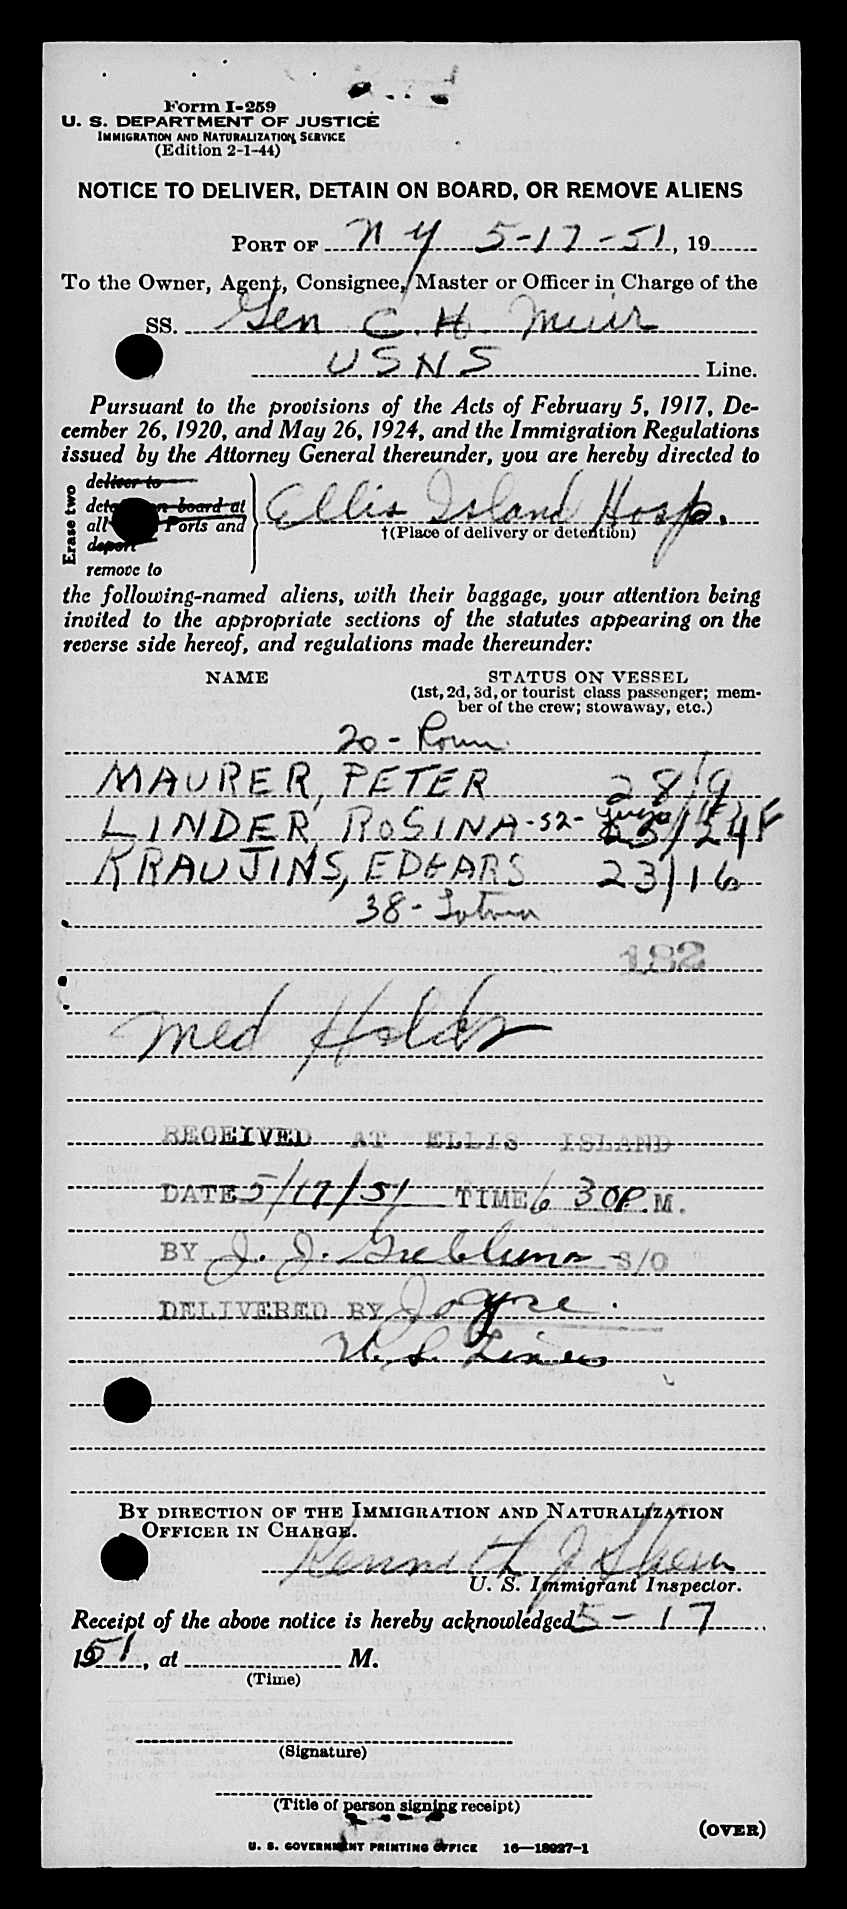 Form I-259
U. S. DEPARTMENT OF JUSTICE
IMMIGRATION AND NATURALIZATION SERVICE
(Edition 2-1-44)
NOTICE TO DELIVER, DETAIN ON BOARD, OR REMOVE ALIENS
PORT OF N Y 5-17-51, 19
To the Owner, Agent, Consignee, Master or Officer in Charge of the
SS. Gen C. H. Muir
USNS Line.
Pursuant to the provisions of the Acts of February 5, 1917, De-
cember 26, 1920, and May 26, 1924, and the Immigration Regulations
issued by the Attorney General thereunder, you are hereby directed to
Erase two
deliver to
on board at
all Ports and
deport
remove to
Ellis Island Hosp.
†(Place of delivery or detention)
the following-named aliens, with their baggage, your attention being
invited to the appropriate sections of the statutes appearing on the
reverse side hereof, and regulations made thereunder:
NAME STATUS ON VESSEL
(1st, 2d, 3d, or tourist class passenger; mem-
ber of the crew; stowaway, etc.)
20 - Roum
MAURER, PETER 28/9
LINDER, ROSINA -52- Yugo
KRAUJINS, EDGARS 23/16
38 -
182
Med Holds
RECEIVED AT ELLIS ISLAND
DATE 5/17/51 TIME 6 30 P.M.
BY J. J. S/O
DELIVERED BY Joyce.
U. S. Lines
BY DIRECTION OF THE IMMIGRATION AND NATURALIZATION
OFFICER IN CHARGE.
Kenneth J
U. S. Immigrant Inspector.
Receipt of the above notice is hereby acknowledged 5-17
1951, at M.
(Time)
(Signature)
(Title of person signing receipt)
(OVER)
U. S. GOVERNMENT PRINTING OFFICE 16—18927-1